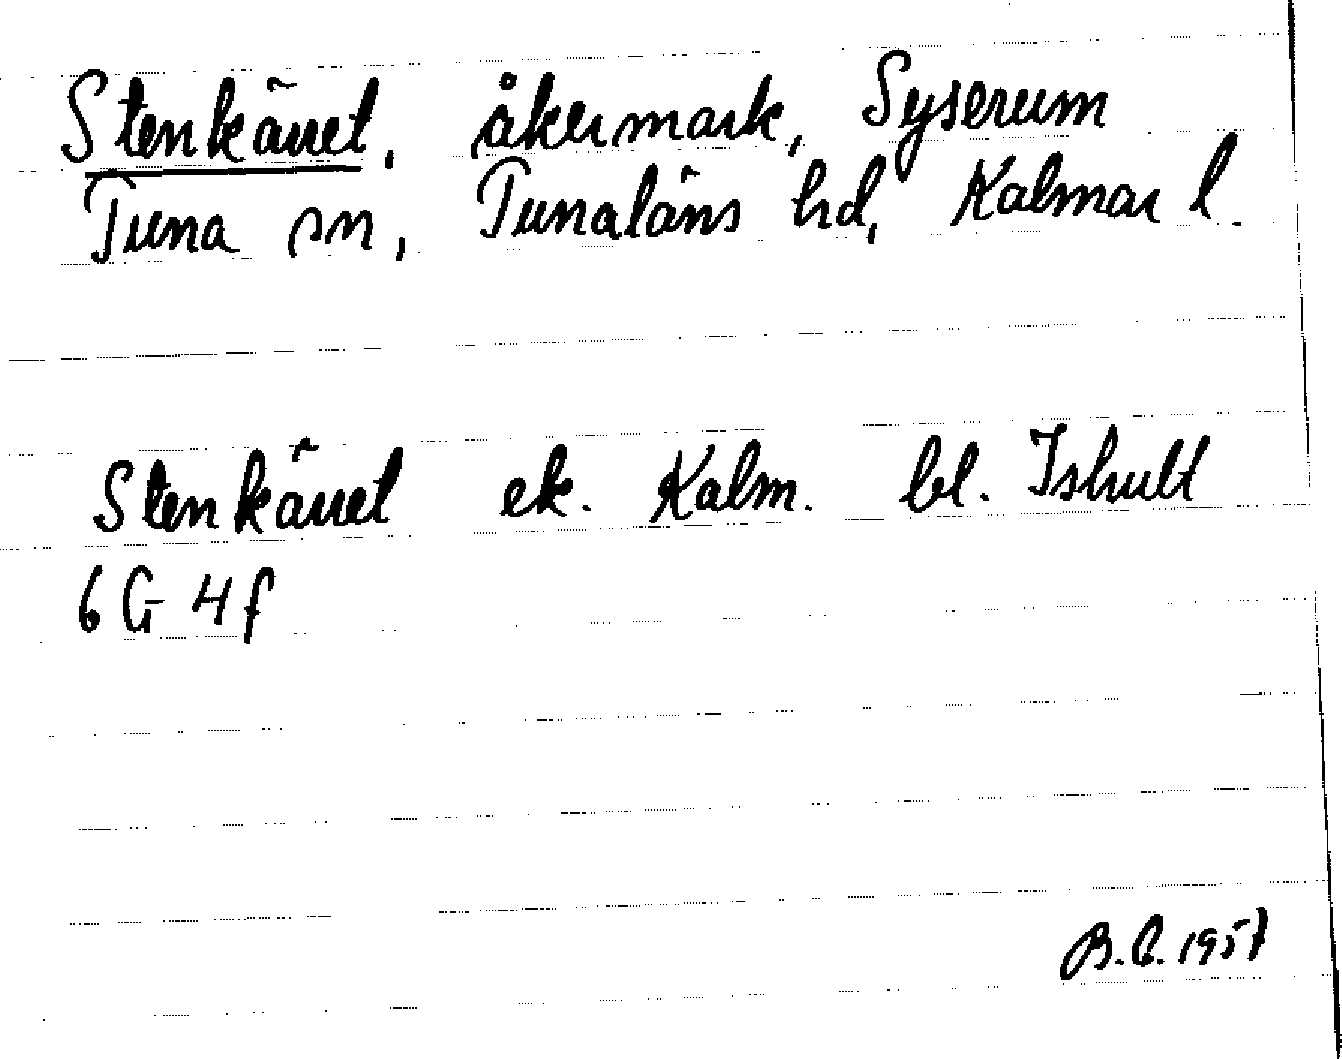 Stenkärret, åkermark, Syserum
Tuna sn, Tunaläns hd, Kalmar l.
Stenkärret ek. Kalm. bl. Ishult
6 G 4 f
B.C. 1957